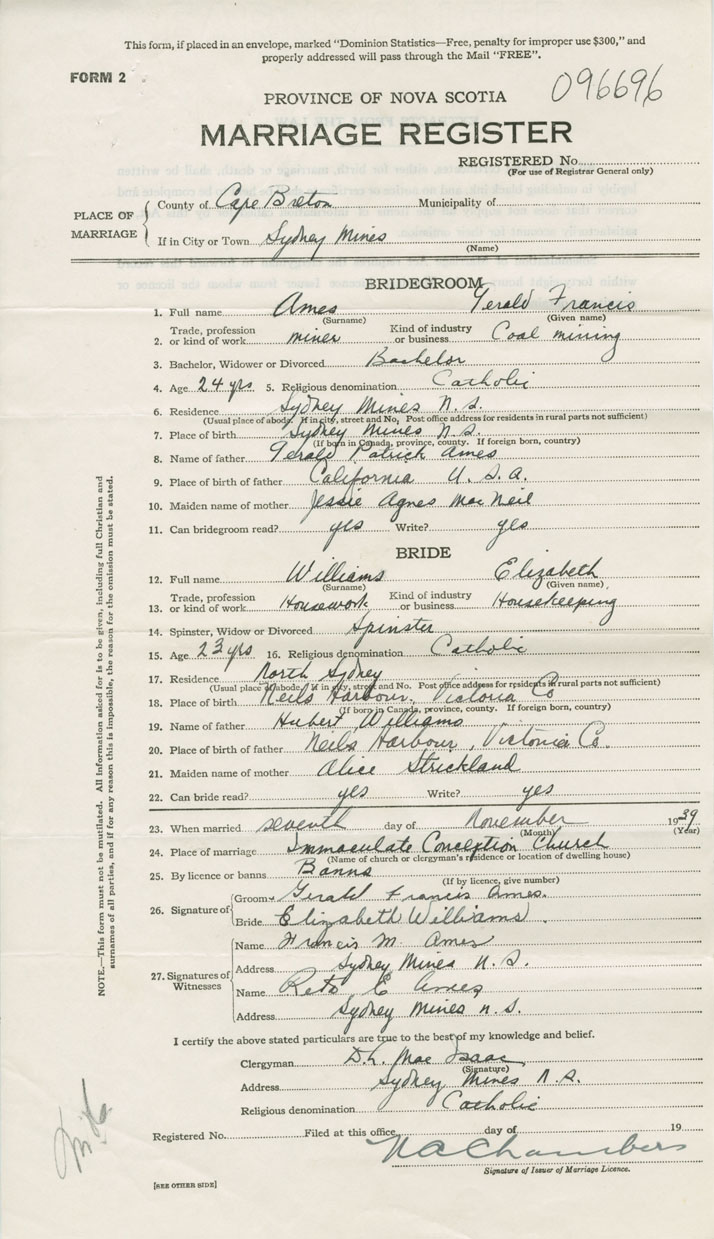 This form, if placed in an envelope, marked "Dominion Statistics—Free, penalty for improper use $300," and
properly addressed will pass through the Mail "FREE".
FORM 2
096696
PROVINCE OF NOVA SCOTIA
MARRIAGE REGISTER
REGISTERED No.
(For use of Registrar General only)
PLACE OF MARRIAGE
County of Cape Breton Municipality of
If in City or Town Sydney Mines
(Name)
BRIDEGROOM
1. Full name Ames Gerald Francis
(Surname) (Given name)
2. Trade, profession or kind of work miner Kind of industry or business Coal mining
3. Bachelor, Widower or Divorced Bachelor
4. Age 24 yrs 5. Religious denomination Catholic
6. Residence Sydney Mines N.S.
(Usual place of abode. If in city, street and No. Post office address for residents in rural parts not sufficient)
7. Place of birth Sydney Mines N.S.
(If born in Canada, province, county. If foreign born, country)
8. Name of father Gerald Patrick Ames
9. Place of birth of father California U.S.A.
10. Maiden name of mother Jessie Agnes MacNeil
11. Can bridegroom read? yes Write? yes
BRIDE
12. Full name Williams Elizabeth
(Surname) (Given name)
13. Trade, profession or kind of work Housework Kind of industry or business Housekeeping
14. Spinster, Widow or Divorced Spinster
15. Age 23 yrs 16. Religious denomination Catholic
17. Residence North Sydney
(Usual place of abode. If in city, street and No. Post office address for residents in rural parts not sufficient)
18. Place of birth Neils Harbour, Victoria Co
(If born in Canada, province, county. If foreign born, country)
19. Name of father Hubert Williams
20. Place of birth of father Neils Harbour, Victoria Co.
21. Maiden name of mother Alice Strickland
22. Can bride read? yes Write? yes
23. When married seventh day of November 1939
(Month) (Year)
24. Place of marriage Immaculate Conception Church
(Name of church or clergyman's residence or location of dwelling house)
25. By licence or banns Banns
(If by licence, give number)
26. Signature of
Groom Gerald Francis Ames.
Bride Elizabeth Williams.
27. Signatures of Witnesses
Name Francis M. Ames
Address Sydney Mines N.S.
Name Reto E Ames
Address Sydney Mines N.S.
I certify the above stated particulars are true to the best of my knowledge and belief.
Clergyman D.L. MacIsaac
(Signature)
Address Sydney Mines N.S.
Religious denomination Catholic
Registered No. Filed at this office day of 19
N A Chambers
Signature of Issuer of Marriage Licence.
[SEE OTHER SIDE]
NOTE.—This form must not be mutilated. All information asked for is to be given, including full Christian and
surnames of all parties, and if for any reason this is impossible, the reason for the omission must be stated.